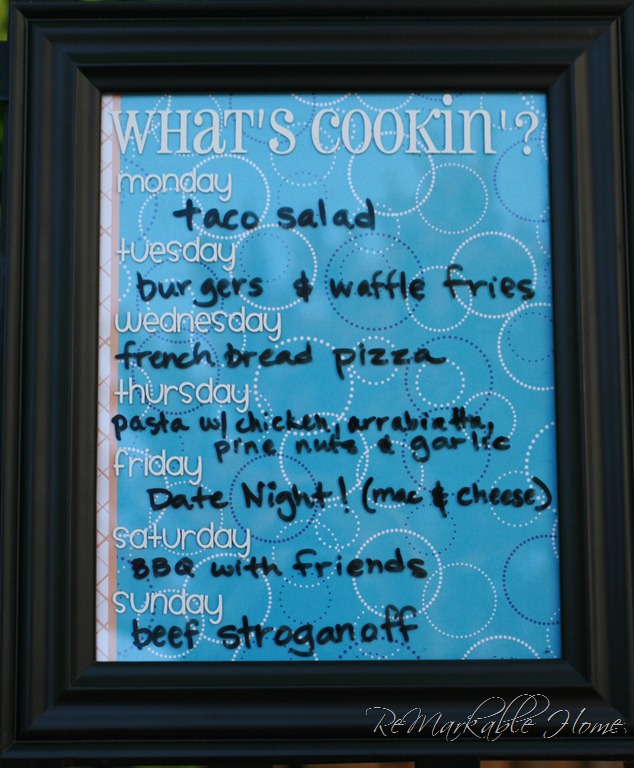 what's cookin'?
monday
taco salad
tuesday
burgers & waffle fries
wednesday
french bread pizza
thursday
pasta w/ chicken, arrabiatta,
pine nuts & garlic
friday
Date Night! (mac & cheese)
saturday
BBQ with friends
sunday
beef stroganoff
ReMarkable Home